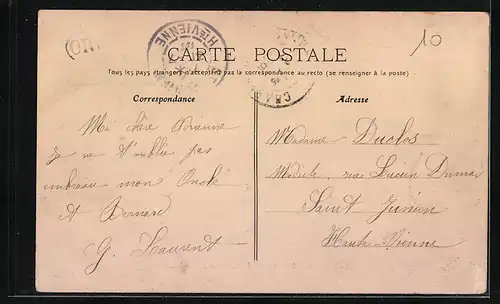 10
ORL
HTE VIENNE
CARTE POSTALE
Tous les pays étrangers n'acceptent pas la correspondance au recto (se renseigner à la poste)
Correspondance
Adresse
Ma chère
Je ne t'oublie pas
embrasse mon Oncle
et Bernard
G. Laurent
Madame Duclos
Modiste, rue Lucien Dumas
Saint Junien
Haute Vienne